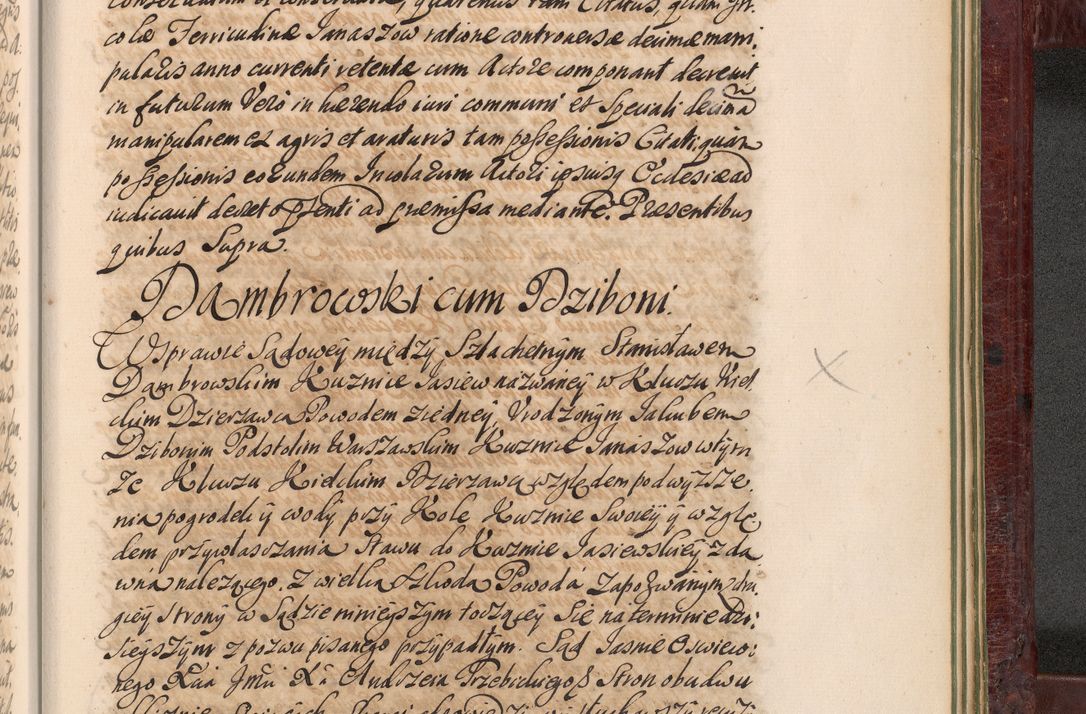 consecuturum et conservaturum, quatenus tam Citatus, quam In,
colæ Ferricudinæ Janaszow ratione controversæ decimæ mani,
pularis anno currenti retentæ cum Actore componant decrevit
in futurum Vero in hærendo iuri communi et Speciali decima
manipularem ex agris et araturis tam possessionis Citati, quam
possessionis eorundem Incolarum Actori ipsiusq Ecclesiæ ad
iudicavit decreto psenti ad præmissa mediante. Præsentibus
quibus Supra.
Dambrowski cum Dziboni.
W Sprawie Sądowey między Szlachetnym Stanisławem
Dambrowskim Kuznice Jasiew nazwaney w Kluczu Kiel
ckim Dzierzawcą Powodem ziedney, Vrodzonym Jakubem
Dzibonim Podstolim Warszawskim Kuznice Janaszow wtym
ze Kluczu Kieleckim Dzierzawcą względem podwyzsze,
nia pogrodek y wody przy Kole Kuznice Swoiey y wzglę
dem przywłasczania Stawu do Kuznice Jasiewskiey zda
wna nalezącego. Z wielką Szkodą Powoda Zapozwanym zdru
giey Strony w Sądzie ninieyszym toczącey Się na terminie dzi,
sieyszym z pozwu pisanego przypadłym. Sąd Jasnie Oswieco,
nego Xcia Jmci Xa Andrzeia Trzebickiego Stron obudwu